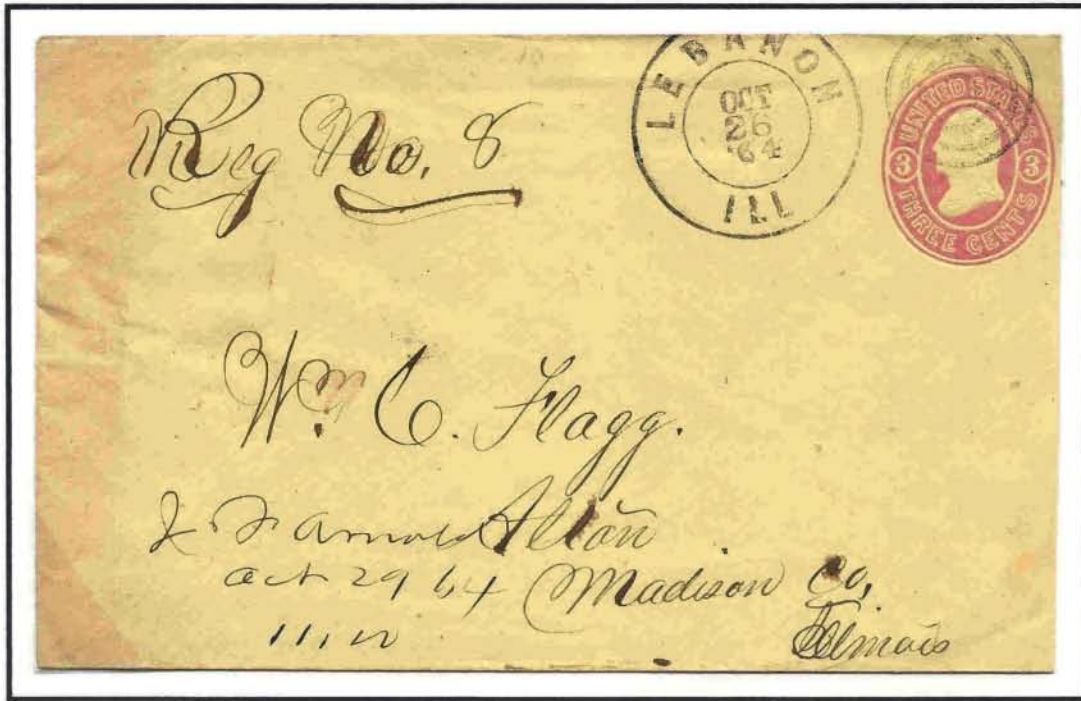 Reg No. 8
LEBANON
OCT
26
'64
ILL
UNITED STATES
3 3
THREE CENTS
Wm C. Flagg.
Alton
Madison Co,
Illinois
J F Arnold
Oct 29 64